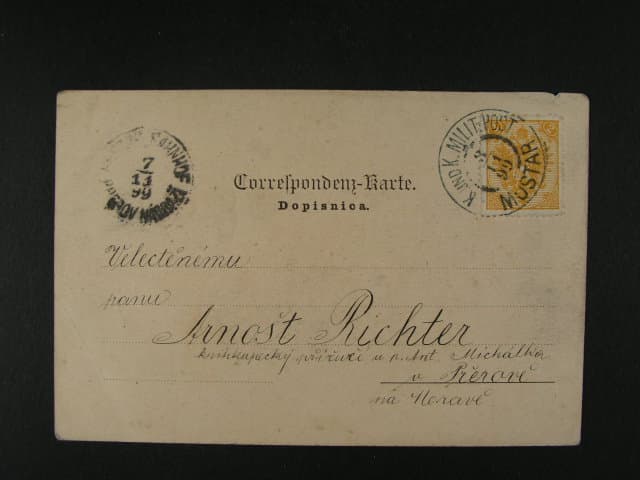 K. UND K. MILIT. POST
MOSTAR
99
BAHNHOF
7
11
99
Correspondenz-Karte.
Dopisnica.
Velectěnému
panu
Arnošt Richter
knihkupecký příručí u p. Ant. Michálka
v Přerově
na Moravě